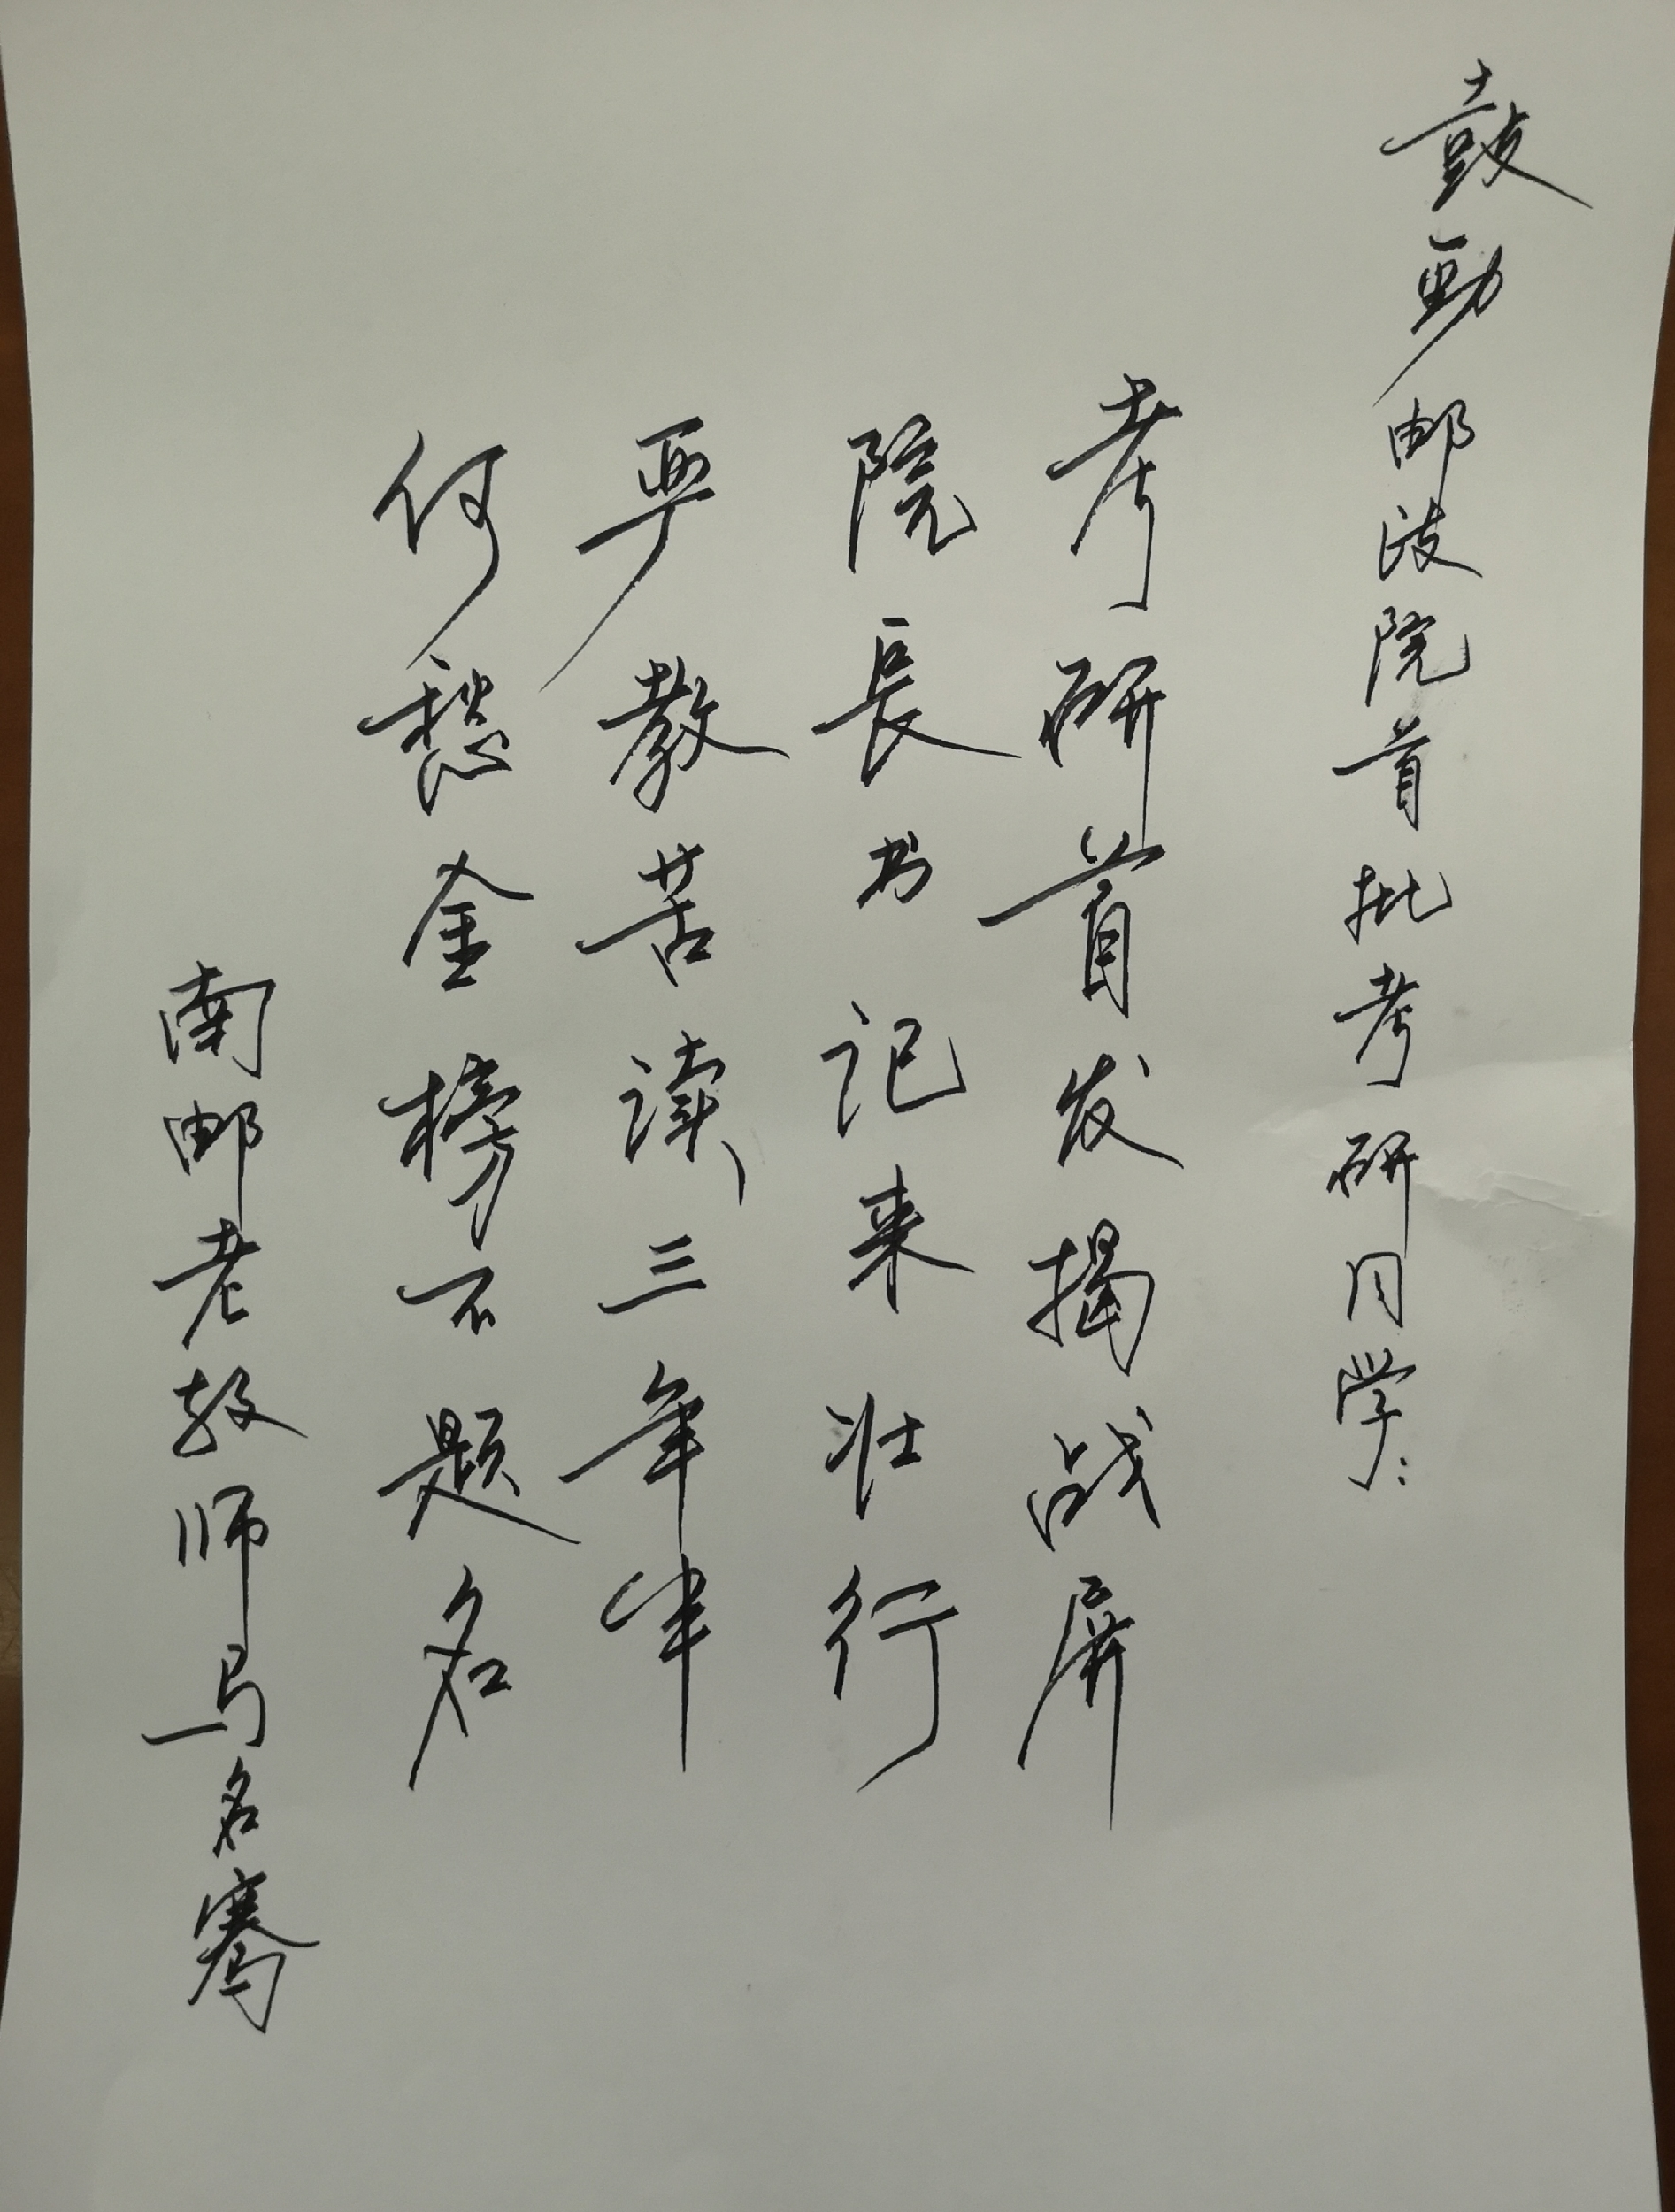 鼓劲邮政院首批考研同学:
考研首发揭战屏
院長书记来壮行
严教苦读三年半
何愁金榜不题名
南邮老教师马名骞